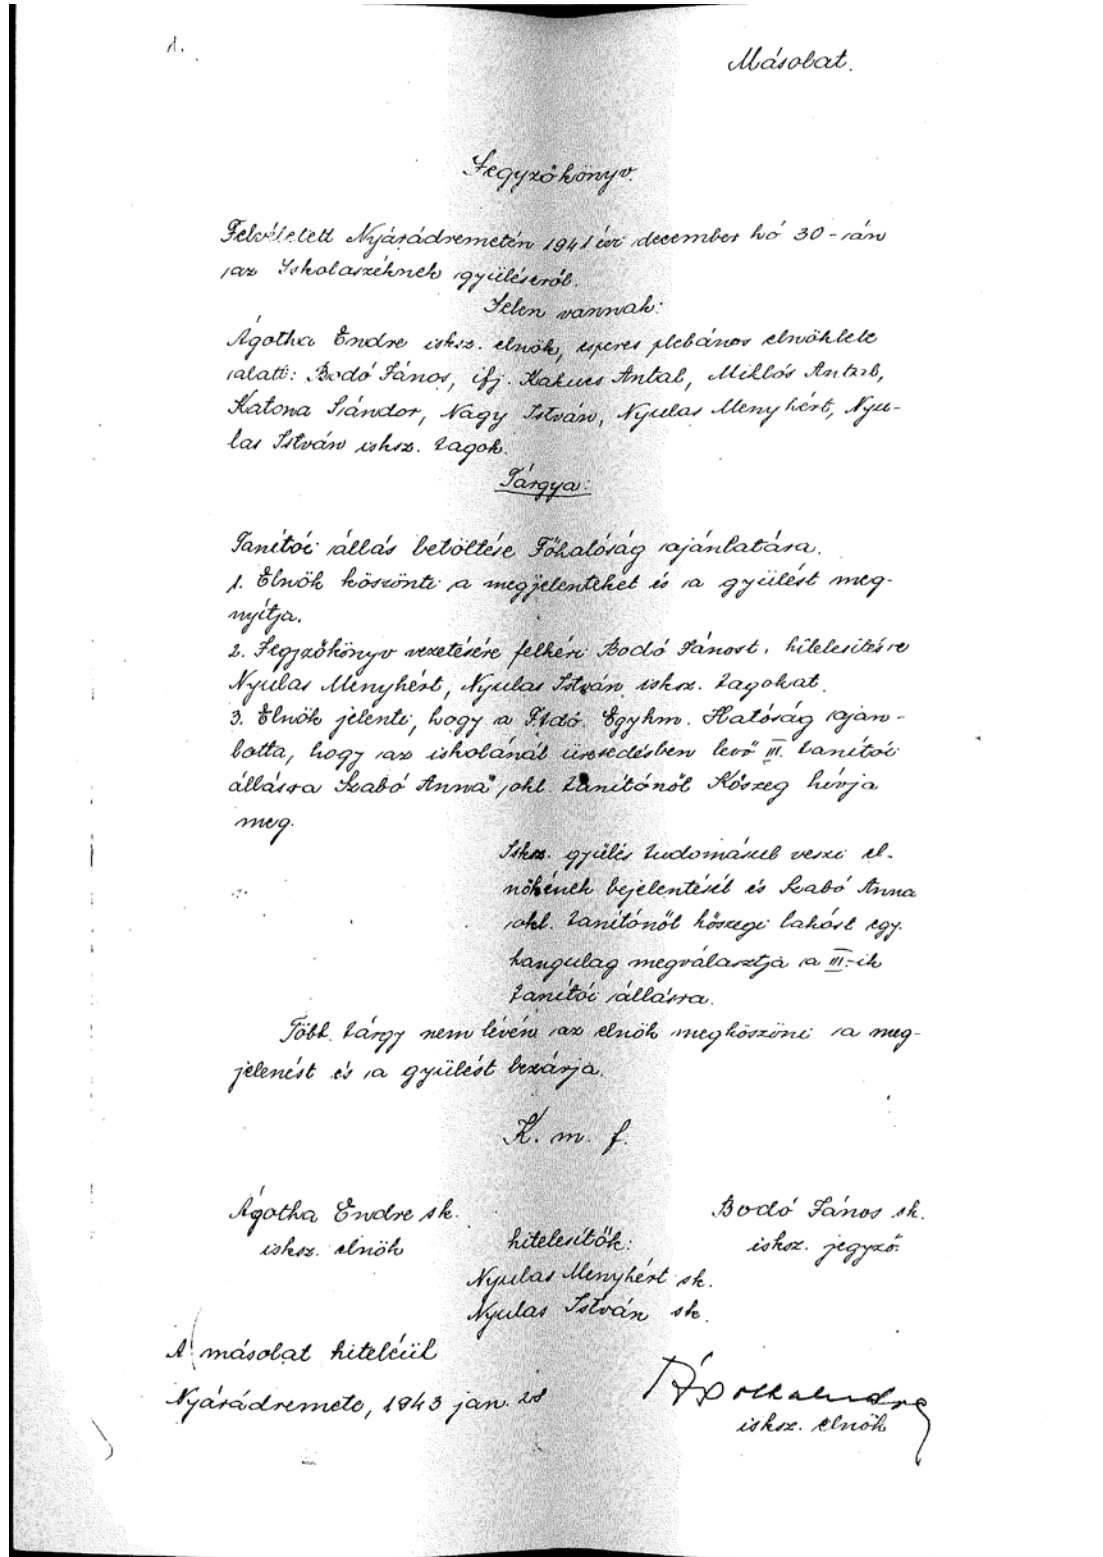 1.
Másolat.
Jegyzőkönyv.
Felvétetett Nyárádremetén 1941 évi december hó 30-án
az Iskolaszéknek gyüléséről.
Jelen vannak:
Ágotha Endre isksz. elnök, esperes plebános elnöklete
alatt: Bodó János, ifj. Kakucs Antal, Miklós Antal,
Katona Sándor, Nagy István, Nyulas Menyhért, Nyu-
las István isksz. tagok.
Tárgya:
Tanítói állás betöltése Főhatóság ajánlatára.
1. Elnök köszönti a megjelenteket és a gyülést meg-
nyítja.
2. Jegyzőkönyv vezetésére felkéri Bodó Jánost, hitelesitésre
Nyulas Menyhért, Nyulas István isksz. tagokat.
3. Elnök jelenti, hogy a Egyhm. Hatóság aján-
lotta, hogy az iskolánál üresedésben levő III. tanítói
állásra Szabó Anna okl. tanítónőt Kőszeg hívja
meg.
Isksz. gyülés tudomásul veszi el-
nökének bejelentését és Szabó Anna
okl. tanítónőt kőszegi lakóst egy-
hangulag megválasztja a III.-ik
tanítói állásra.
Több tárgy nem lévén az elnök megköszöni a meg-
jelenést és a gyülést bezárja.
K. m. f.
Ágotha Endre sk.
isksz. elnök
Bodó János sk.
isksz. jegyző.
hitelesítők:
Nyulas Menyhért sk.
Nyulas István sk.
A másolat hiteléül
Nyárádremete, 1943 jan. 28
isksz. elnök